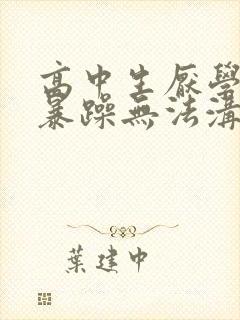 高中生厭學
暴躁無法溝
葉建中